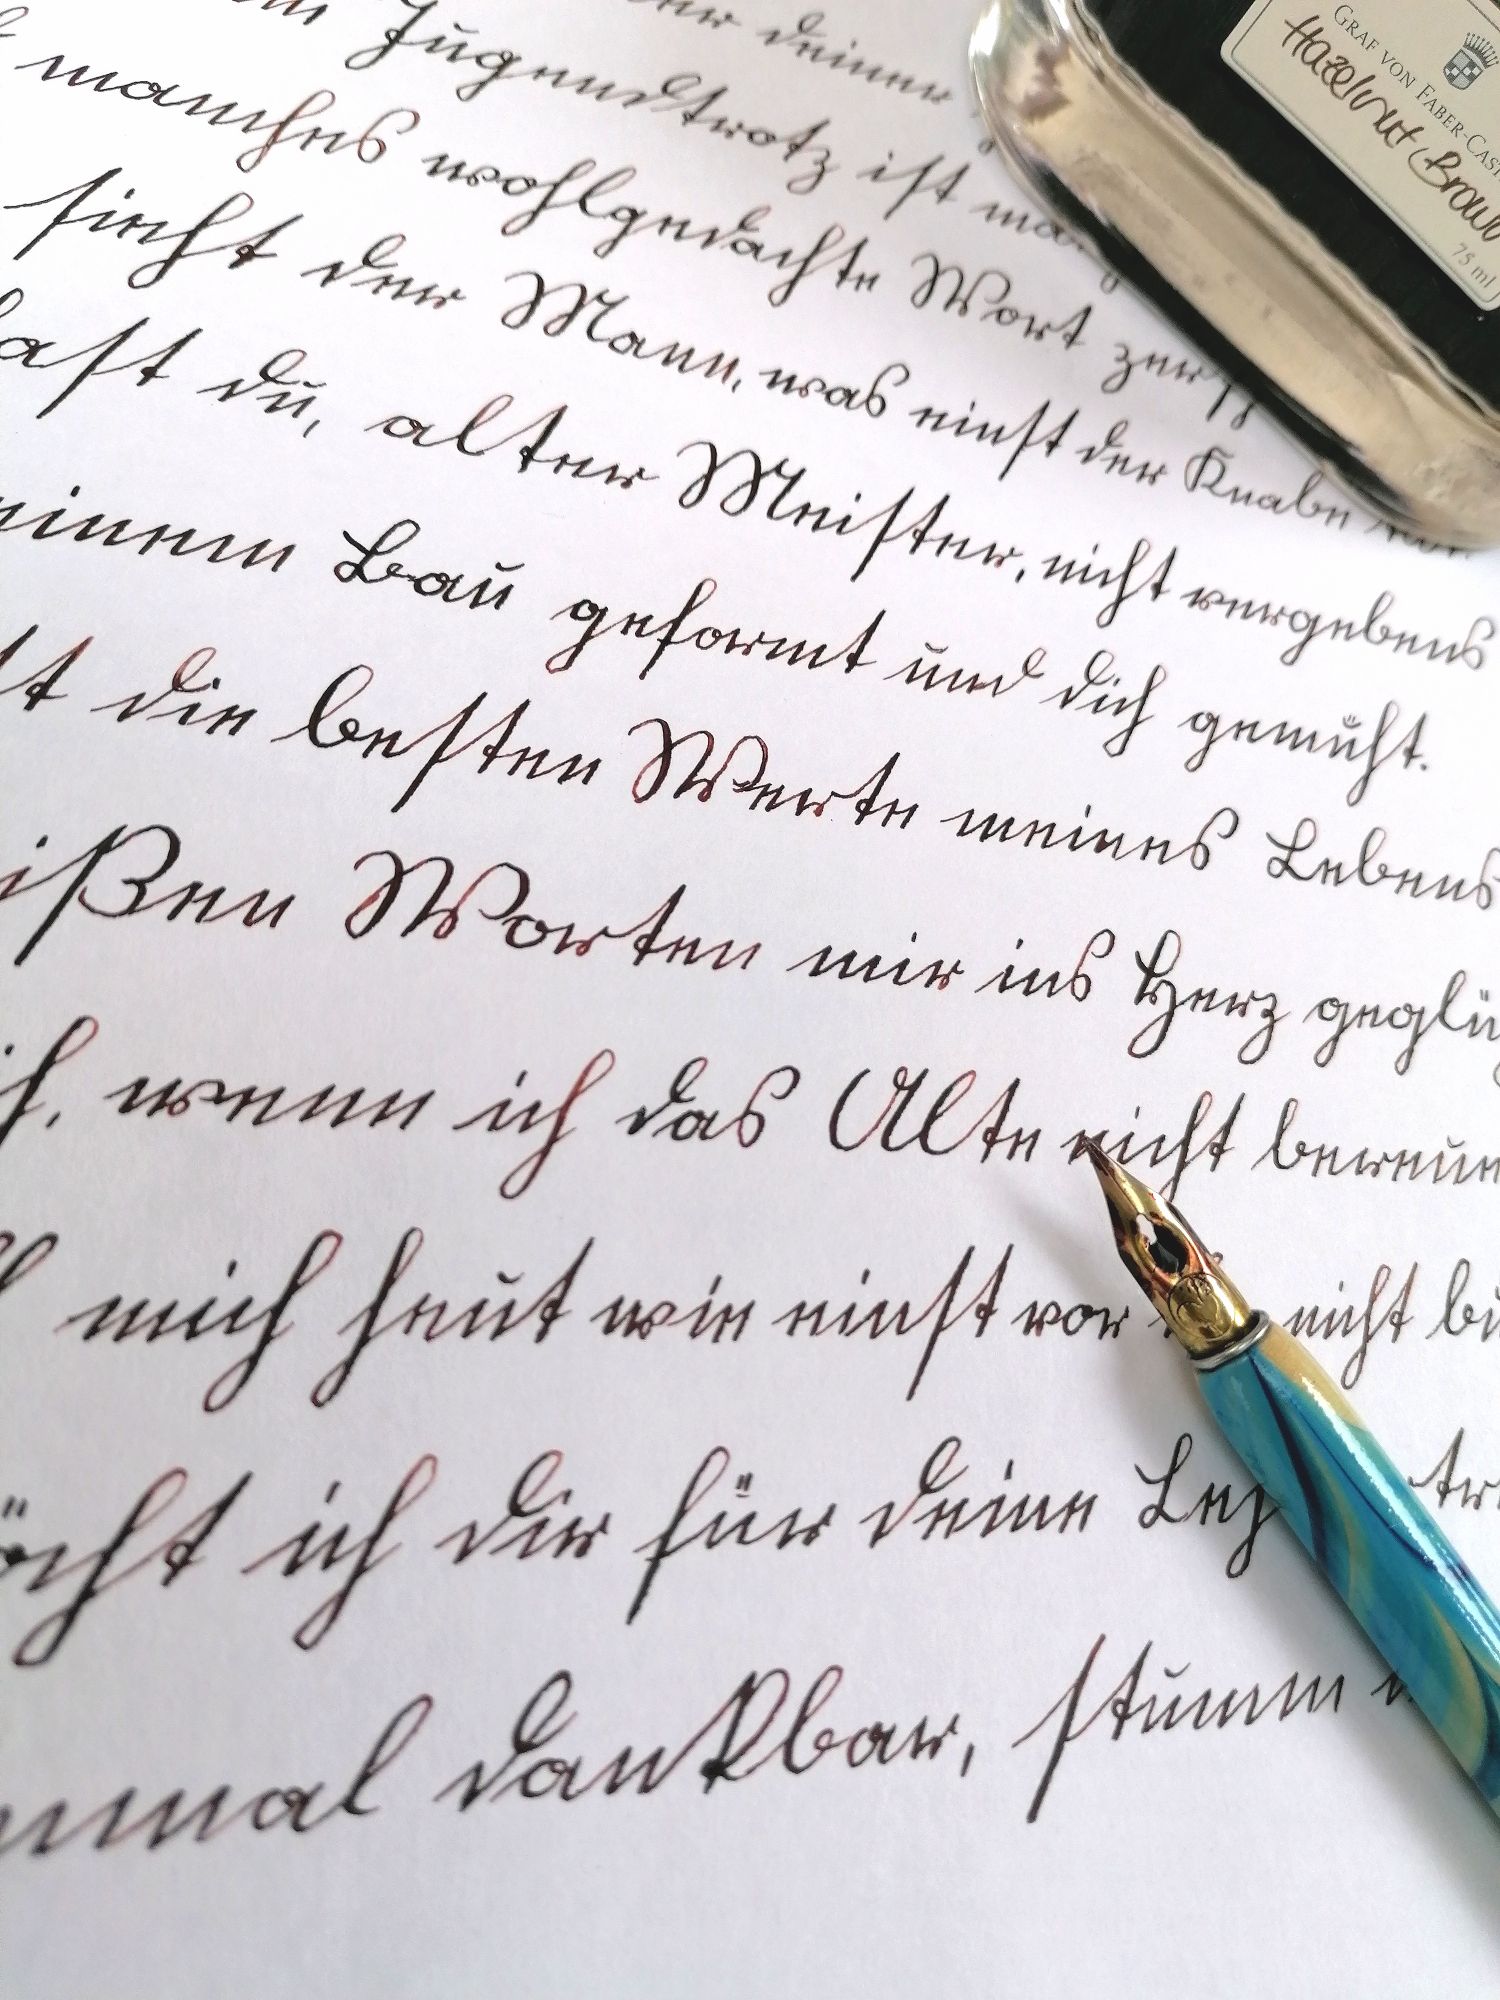 deiner
Jugendtrotz ist
manches wohlgedachte Wort
sieht der Mann, was einst der Knabe
hast du, alter Meister, nicht vergebens
meinem Bau geformt und dich gemüht.
die besten Werte meines Lebens
Worten mir ins Herz geglü
wenn ich das Alte nicht bereue
mich heut wie einst vor nicht
ich dir für deine
dankbar, stumm
GRAF VON FABER-CAST
Hazelnut Brown
75 ml